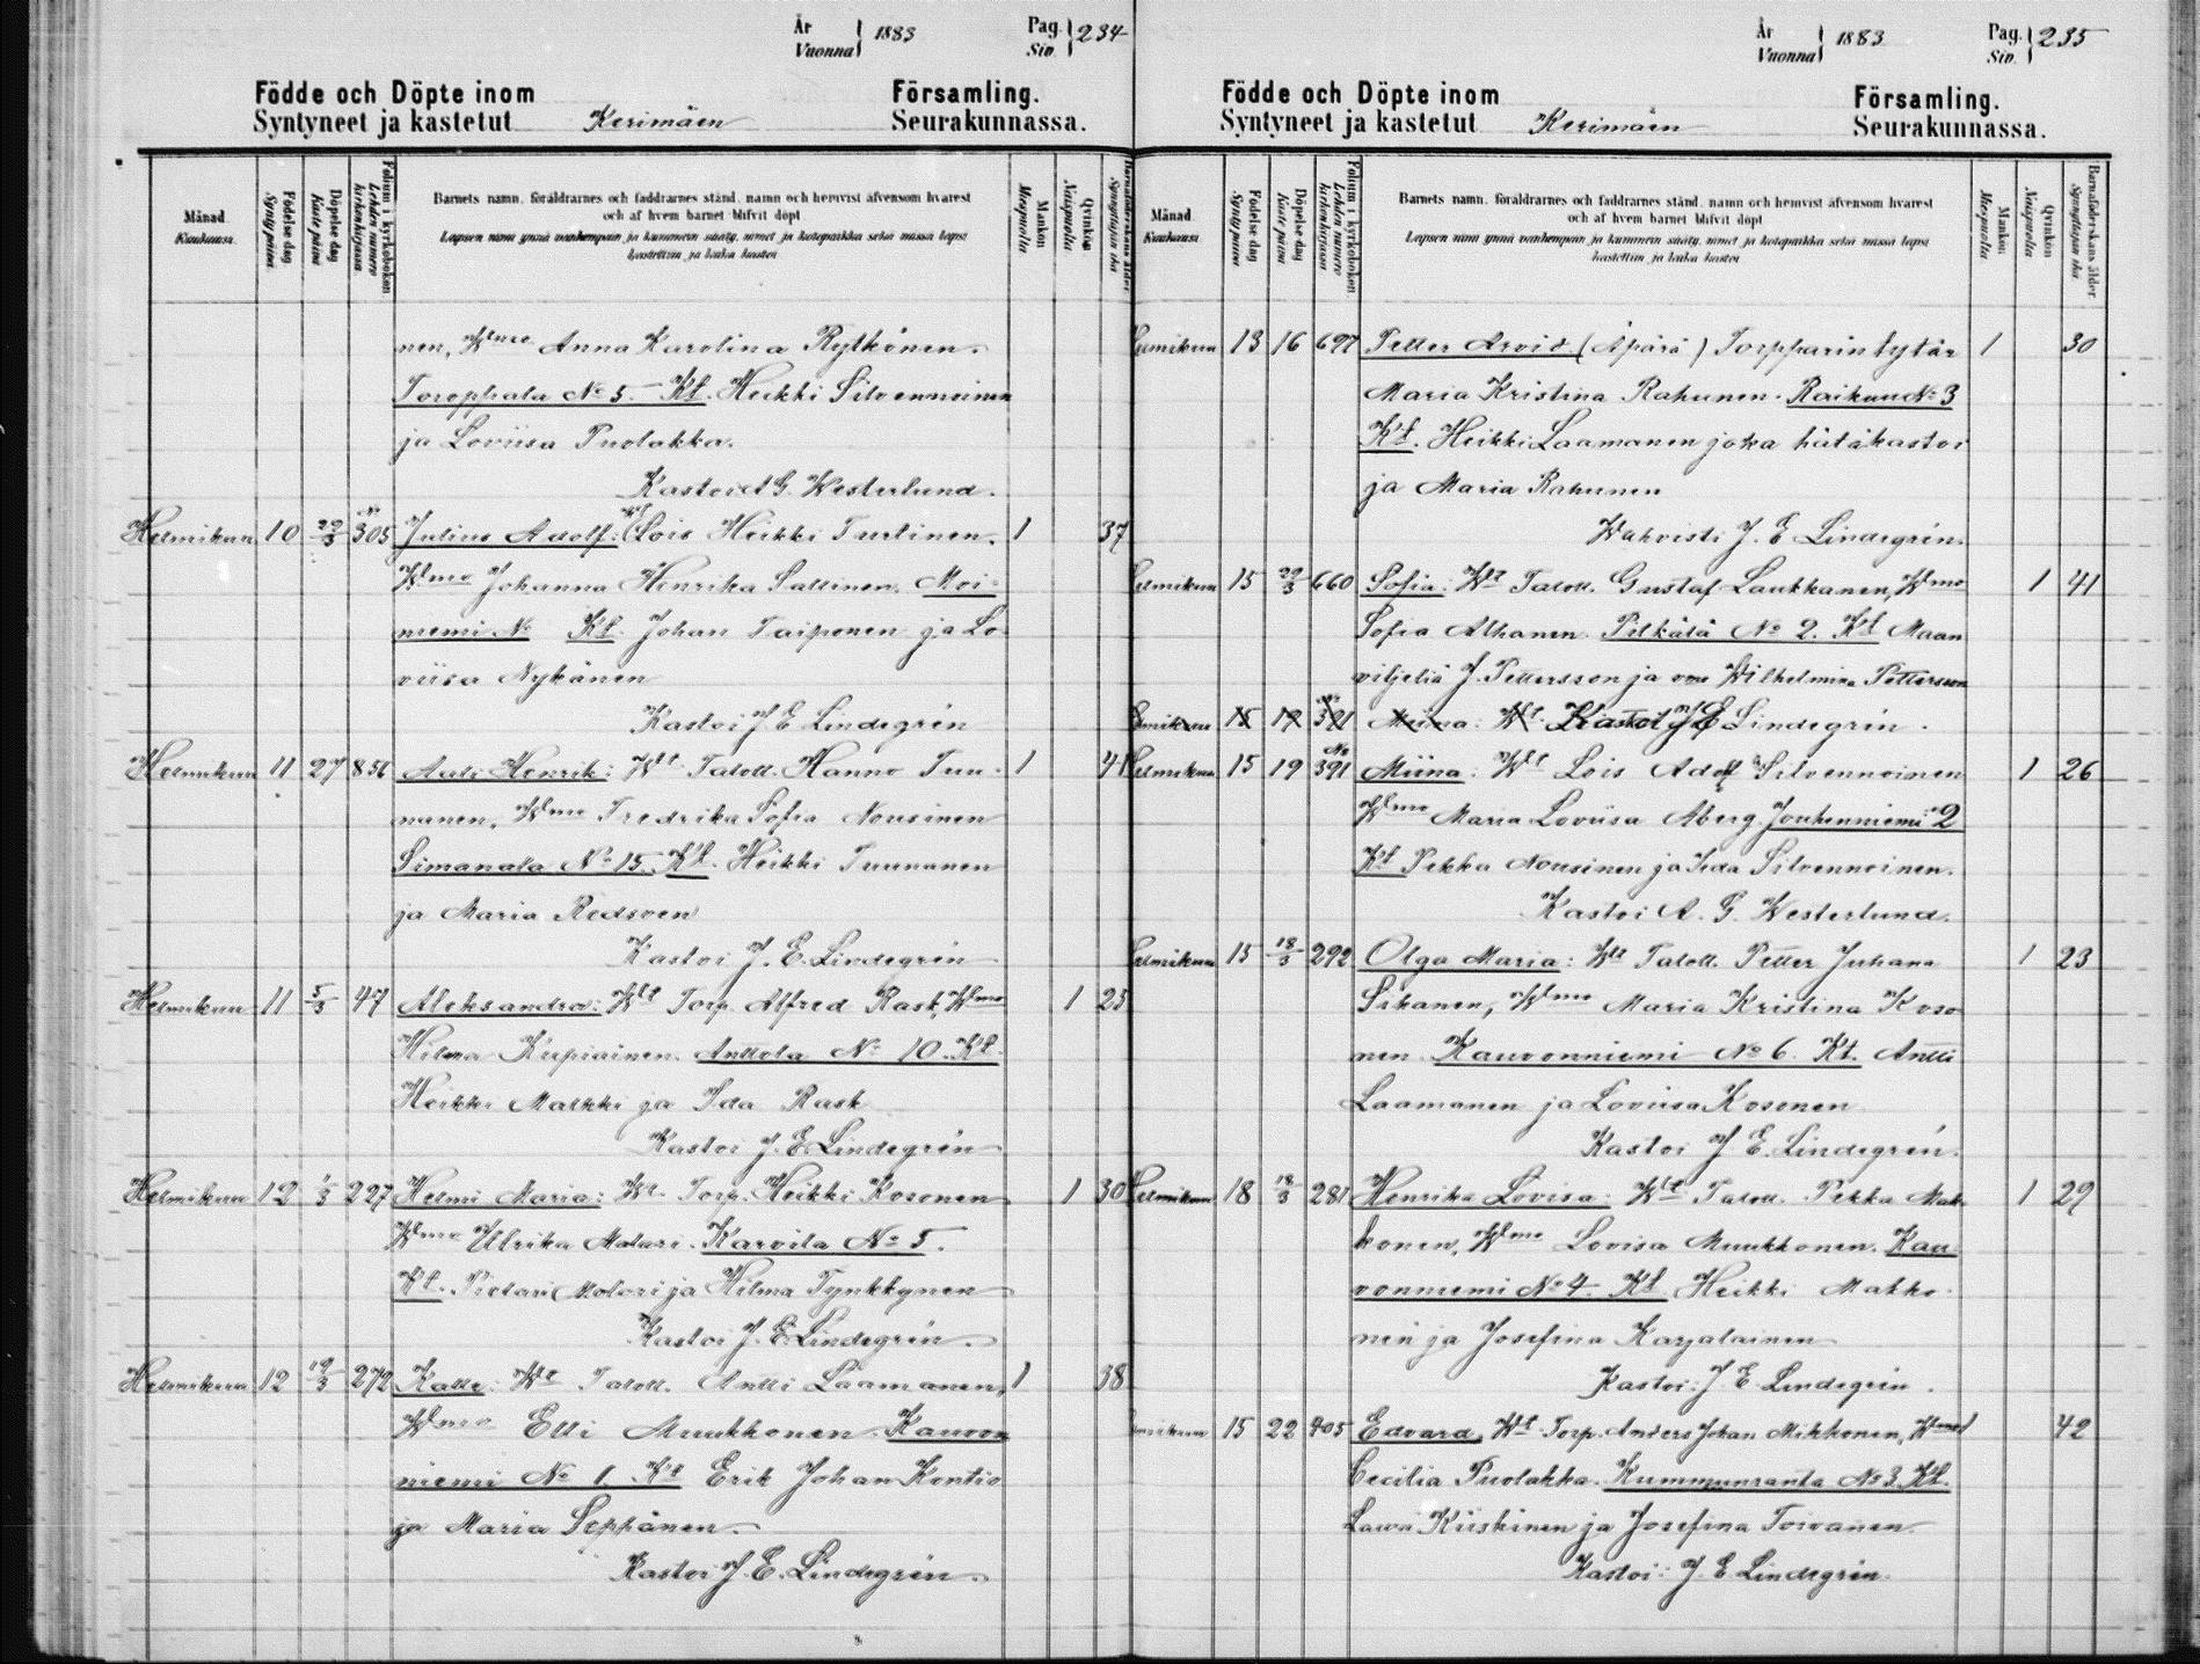 År
Vuonna } 1883 Pag.
Siv. } 234
Födde och Döpte inom Församling.
Syntyneet ja kastetut Kerimäen Seurakunnassa.
Månad Kuukausi
Födelse dag Synty päivä
Döpelse dag Kaste päivä
Folium i kyrkoboken Lehden numero kirkonkirjassa
Barnets namn, föräldrarnes och faddrarnes stånd, namn och hemvist äfvensom hvarest
och af hvem barnet blifvit döpt
Lapsen nimi ynnä vanhempain ja kummein sääty, nimet ja kotopaikka sekä missä lapsi
kastettiin ja kuka kastoi
Mankön Miespuolia
Qvinkön Naispuolia
Barnaföderskans ålder Synnyttäjän ikä
nen, Wmo Anna Karolina Rytkönen.
Toroppala No 5. Kt. Heikki Silvennoinen
ja Loviisa Puolakka.
Kastoi A G. Westerlund.
Helmikuu 10 29/3 No 305 Julius Adolf: Wt Lois Heikki Turtinen. 1 37
Wmo Johanna Henrika Sallinen. Moi-
niemi No Kt. Johan Taiponen ja Lo-
viisa Nykänen
Kastoi J E Lindegrén
Helmikuu 11 27 856 Antti Henrik: Wt Taloll. Hanno Tuu- 1 41
nanen, Wmo Fredrika Sofia Nousinen
Simanala No 15. Kt. Heikki Tuunanen
ja Maria Redsven
Kastoi J. E. Lindegrén
Helmikuu 11 5/3 47 Aleksandra: Wt Torp. Alfred Rask, Wmo 1 25
Hilma Kupiainen. Anttola No 10. Kt.
Heikki Malkki ja Ida Rask
Kastoi J. E. Lindegrén
Helmikuu 12 1/3 227 Helmi Maria: Wt. Torp. Heikki Kosonen 1 30
Wmo Ulrika Molari. Karvila No 5.
Kt. Pietari Molari ja Hilma Tynkkynen
Kastoi J. E. Lindegrén.
Helmikuu 12 19/3 272 Kalle: Wt Taloll. Antti Laamanen, 1 38
Wmo Elli Muukkonen. Kauvon
niemi No 1. Kt Erik Johan Kontio
ja Maria Seppänen.
Kastoi J. E. Lindegrén.
År
Vuonna } 1883 Pag.
Siv. } 235
Födde och Döpte inom Församling.
Syntyneet ja kastetut Kerimäen Seurakunnassa.
Månad Kuukausi
Födelse dag Synty päivä
Döpelse dag Kaste päivä
Folium i kyrkoboken Lehden numero kirkonkirjassa
Barnets namn, föräldrarnes och faddrarnes stånd, namn och hemvist äfvensom hvarest
och af hvem barnet blifvit döpt
Lapsen nimi ynnä vanhempain ja kummein sääty, nimet ja kotopaikka sekä missä lapsi
kastettiin ja kuka kastoi
Mankön Miespuolia
Qvinkön Naispuolia
Barnaföderskans ålder Synnyttäjän ikä
Helmikuu 13 16 697 Petter Arvid (Äpärä) Torpparin tytär 1 30
Maria Kristina Rahunen. Raikuu No 3
Kt. Heikki Laamanen joka hätäkastoi
ja Maria Rahunen
Wahvisti J. E. Lindegrén.
Helmikuu 15 29/3 660 Sofia: Wt Taloll. Gustaf Laukkanen, Wmo 1 41
Sofia Alhanen. Pitkälä No 2. Kt Maan
viljeliä J. Pettersson ja vmo Wilhelmina Pettersson
Helmikuu 15 19 391 Miina: Wt. Kastoi J E Lindegrén.
Helmikuu 15 19 No 391 Miina: Wt Lois Adolf Silvennoinen 1 26
Wmo Maria Loviisa Åberg. Jouhenniemi 2
Kt Pekka Nousinen ja Ida Silvennoinen.
Kastoi A. G. Westerlund.
Helmikuu 15 18/3 292 Olga Maria: Wt Taloll. Petter Juhana 1 23
Sikanen, Wmo Maria Kristina Koso
nen. Kauvonniemi No 6. Kt. Antti
Laamanen ja Loviisa Kosonen
Kastoi J E. Lindegrén.
Helmikuu 18 18/3 281 Henrika Lovisa: Wt Taloll. Pekka Mak- 1 29
konen, Wmo Lovisa Muukkonen. Kau
vonniemi No 4. Kt Heikki Makko-
nen ja Josefina Karjalainen
Kastoi: J. E. Lindegrén.
Helmikuu 15 22 405 Edvard. Wt Torp. Anders Johan Mikkonen, Wmo 1 42
Cecilia Puolakka. Kummunranta No 3. Kt.
Lauri Kiiskinen ja Josefina Toivanen.
Kastoi: J. E Lindegrén.